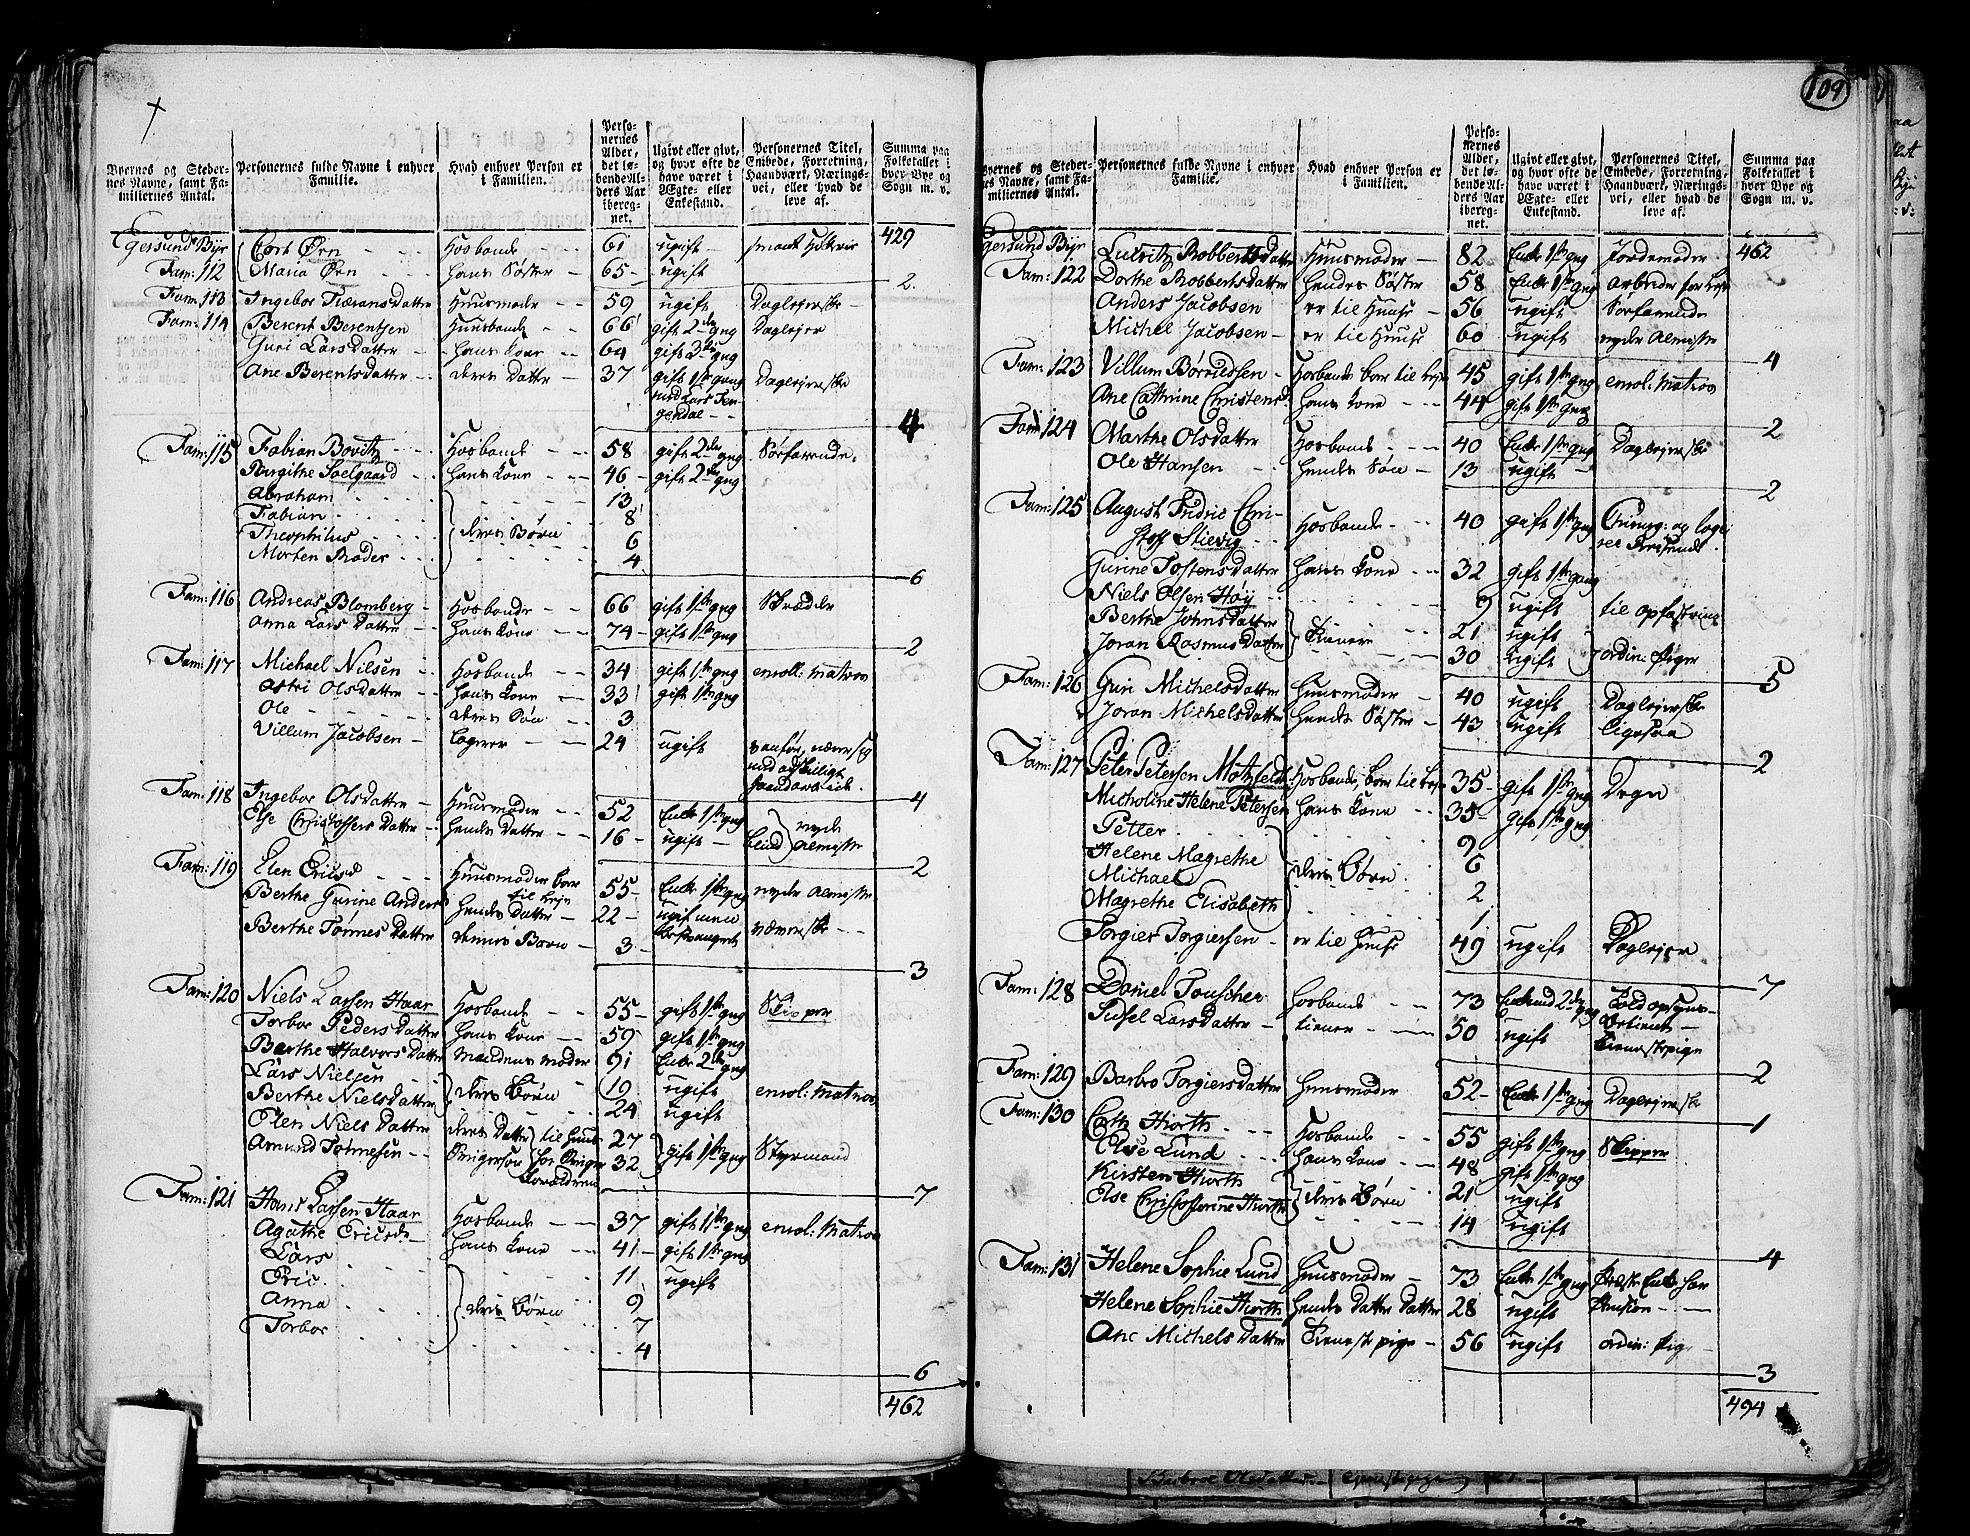 109
Byernes og Steder-
nes Navne, samt Fa-
miliernes Antal.
Personernes fulde Navne i enhver
Familie.
Hvad enhver Person er
i Familien.
Perso-
nernes
Alder,
det lø-
bende Al-
ders Aar
ibereg-
net.
Ugivt eller givt,
og hvor ofte de
have været i
Ægte- eller
Enkestand.
Personernes Titel,
Embede, Forretning,
Haandværk, Nærings-
vei, eller hvad de
leve af.
Summa paa
Folketallet i
hver Bye og
Sogn m. v.
Egersund Bye Cort Ørn Hosbonde 61 ugift 429
Fam: 112 Maria Ørn hans Søster 65 ugift 2
Fam: 113 Ingebor Tiærans datter Huusmoder 59 ugift Daglejerske
Fam: 114 Berent Berentsen Huusbonde 66 gift 2den gng Daglejer
Guri Larsdatter hans Kone 64 gift 3die gng
Ane Berentsdatter deres Datter 37 gift 1ste gang Daglejerske
4
Fam: 115 Fabian Bovitz Hosbonde 58 gift 2den gng Søefarende
Birgithe Soelgaard hans Kone 46 gift 2den gng
Abraham 13
Fabian 8
Theophilus deres Børn 6
Morten Broder 4
6
Fam: 116 Andreas Blomberg Hosbonde 66 gift 1ste gng Skreder
Anna Lars Datter hans Kone 74 gift 1ste gng
2
Fam: 117 Michael Nilsen Hosbonde 34 gift 1ste gng enroll: Matros
Astri Olsdatter hans Kone 33 gift 1ste gng
Ole deres Søn 3
Villum Jacobsen Logerer 24 ugift
4
Fam: 118 Ingebor Olsdatter Huusmoder 52 Enke 1ste gng
Else Christoffers Datter hendes Datter 16 ugift
2
Fam: 119 Elen Ericsd Huusmoder boer til leje 55 Enke 1ste gng nyder Almisse
Berthe Gurine Anders hendes Datter 22
Berthe Tønnes Datter dennes Barn 3
3
Fam: 120 Niels Larsen Haar Hosbonde 55 gift 1ste gng Skipper
Torbor Peders Datter hans Kone 59 gift 1ste gng
Berthe Halvors Datter Mandens Moder 91 Enke 2den gng
Lars Nielsen 19 ugift enrol: Matros
Berthe Nielsdatter deres Børn 24 ugift
Elen Niels Datter deres Datter til huus 27
Amund Tønnesen Svigersøn hos Sviger Forældrene 32 gift 1ste gng Styrmand
7
Fam: 121 Hans Larsen Haar Hosbonde 37 gift 1ste gng enrol: Matros
Agathe Ericsd. hans Kone 41 gift 1ste gng
Lars 11 ugift
Eric 9
Anna deres Børn 7
Torbor 4
6
462
Byernes og Steder-
nes Navne, samt Fa-
miliernes Antal.
Personernes fulde Navne i enhver
Familie.
Hvad enhver Person er
i Familien.
Perso-
nernes
Alder,
det lø-
bende Al-
ders Aar
ibereg-
net.
Ugivt eller givt,
og hvor ofte de
have været i
Ægte- eller
Enkestand.
Personernes Titel,
Embede, Forretning,
Haandværk, Nærings-
vei, eller hvad de
leve af.
Summa paa
Folketallet i
hver Bye og
Sogn m. v.
Egersund Bye Robbertsdatter Huusmoder 82 Enke 1ste gng Jordemoder 462
Fam: 122 Dorthe Robbertsdatter hendes Søster 58 Enke 1ste gng
Anders Jacobsen er til Huuse 56 ugift Søefarende
Michel Jacobsen er til Huuse 60 ugift nyder Almisse
4
Fam: 123 Villum Hosbonde boer til leje 45 gift 1ste gng enrol: Matros
Ane Cathrine Christensd. hans Kone 44 gift 1ste gng
2
Fam: 124 Marthe Olsdatter Hosbonde 40 Enke 1ste gng Daglejerske
Ole Hansen hendes Søn 13 ugift
2
Fam: 125 August Fridric Chri-
stoff Stievig Hosbonde 40 gift 1ste gng Chirurg: og
Gurine Tostensdatter hans Kone 32 gift 1ste gang
Niels Olsen Høy 9 ugift til opfostring
Berthe Johnsdatter 21 ugift
Joran Rasmusdatter Tienere 30 ugift ordin: Piger
5
Fam: 126 Guri Michelsdatter Huusmoder 40 ugift Daglejerske
Joran Michelsdatter hendes Søster 43 ugift ligesaa
2
Fam: 127 Peter Petersen Motzfeldt Hosbonde, boer til leje 35 gift 1ste gng Degn
Micholine Helene Petersen hans Kone 35 gift 1ste gng
Petter 9
Helene Magrethe 6
Michael deres Børn 2
Magrethe Elisabeth 1
Torgier Torgiersen er til Huuse 49 ugift Daglejer
7
Fam: 128 Daniel Touscher Hosbonde 73 Enkemd 2den gng
Sidsel Larsdatter tiener 50 ugift Tienestepige
2
Fam: 129 Barbro Torgiersdatter Huusmoder 52 Enke 1ste gng Daglejerske
1
Fam: 130 Corth Hiorth Hosbonde 55 gift 1ste gng Skipper
Else Lund hans Kone 48 gift 1ste gng
Kirsten Hiorth 21 ugift
Else Christofferine Hiorth deres Børn 14 ugift
4
Fam: 131 Helene Sophie Lund Huusmoder 73 Enke 1ste gng Præste Enke har
Helene Sophie Hiorth hendes Datter Datter 28 ugift Pension
Ane Michels Datter Tieneste pige 56 ugift ordin: Pige
3
494